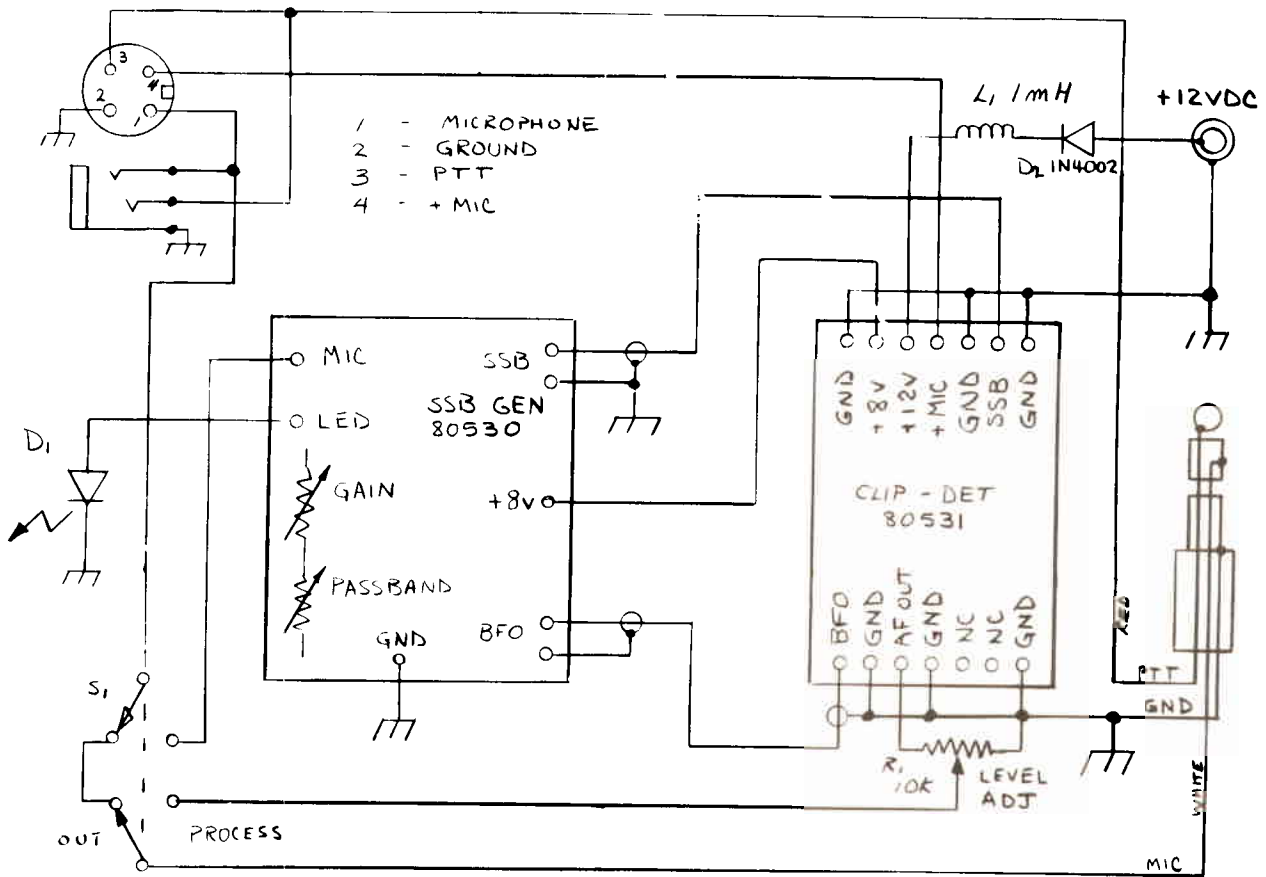 3
4
2
1
1 - MICROPHONE
2 - GROUND
3 - PTT
4 - + MIC
L1 1mH
+12VDC
D2 1N4002
MIC
SSB
LED
SSB GEN
80530
D1
GAIN
+8V
PASSBAND
BFO
GND
GND
+8V
+12V
+MIC
GND
SSB
GND
CLIP - DET
80531
BFO
GND
AF OUT
GND
NC
NC
GND
RED
PTT
GND
S1
R1
10K
LEVEL
ADJ
WHITE
OUT
PROCESS
MIC